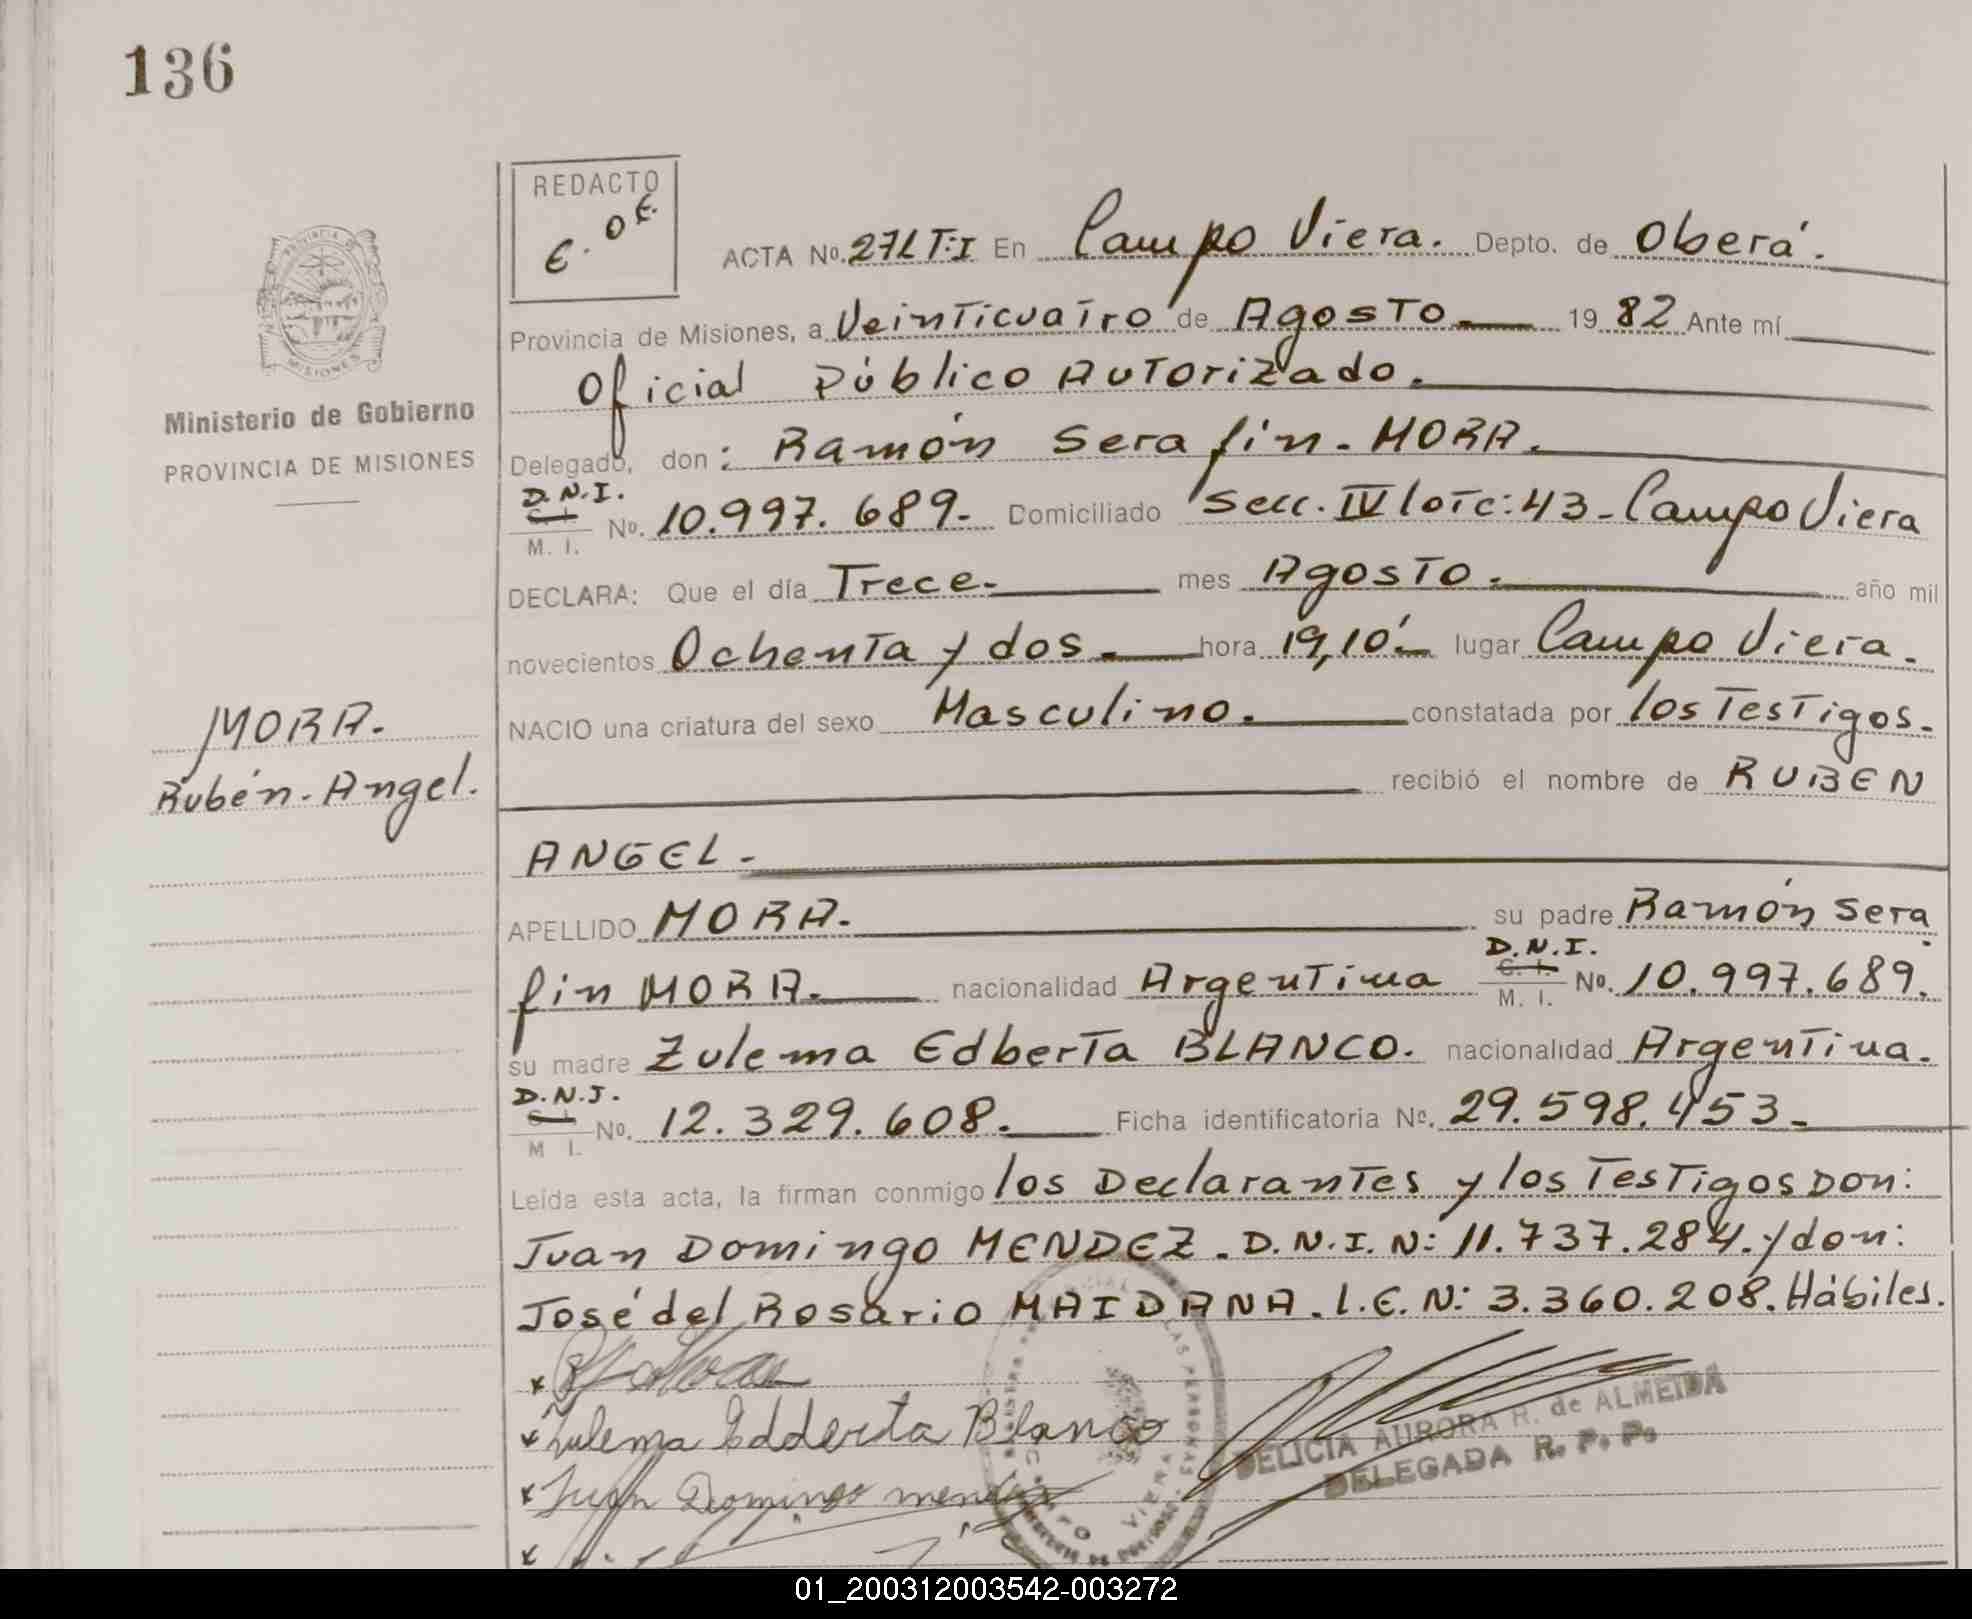 136
REDACTO
E. O E.
ACTA No. 271 T:I En Campo Viera. Depto. de Oberá.
Provincia de Misiones, a Veinticuatro de Agosto 19 82 Ante mí
Oficial Público Autorizado.
Delegado, don: Ramón Serafin - MORA.
D.N.I.
C. I.
M. I. No. 10.997.689. Domiciliado Secc. IV lote: 43 - Campo Viera
DECLARA: Que el día Trece. mes Agosto. año mil
novecientos Ochenta y dos. hora 19,10'. lugar Campo Viera.
NACIO una criatura del sexo Masculino. constatada por los Testigos.
recibió el nombre de RUBEN
ANGEL.
APELLIDO MORA. su padre Ramón Sera
D.N.I.
C. I.
fin MORA. nacionalidad Argentina M. I. No. 10.997.689.
su madre Zulema Edberta BLANCO. nacionalidad Argentina.
D.N.I.
C. I.
M I. No. 12.329.608. Ficha identificatoria No. 29.598.453.
Leída esta acta, la firman conmigo los Declarantes y los Testigos Don:
Juan Domingo MENDEZ. D.N.I. N: 11.737.284. y don:
José del Rosario MAIDANA. L.E. N: 3.360.208. Hábiles.
Zulema Edderta Blanco
Juan Domingo mendez
DELICIA AURORA R. de ALMEIDA
DELEGADA R. P. P.
LAS PERSONAS
VIERA
PROVINCIA DE
MISIONES
Ministerio de Gobierno
PROVINCIA DE MISIONES
MORA.
Rubén - Angel.
01_200312003542-003272